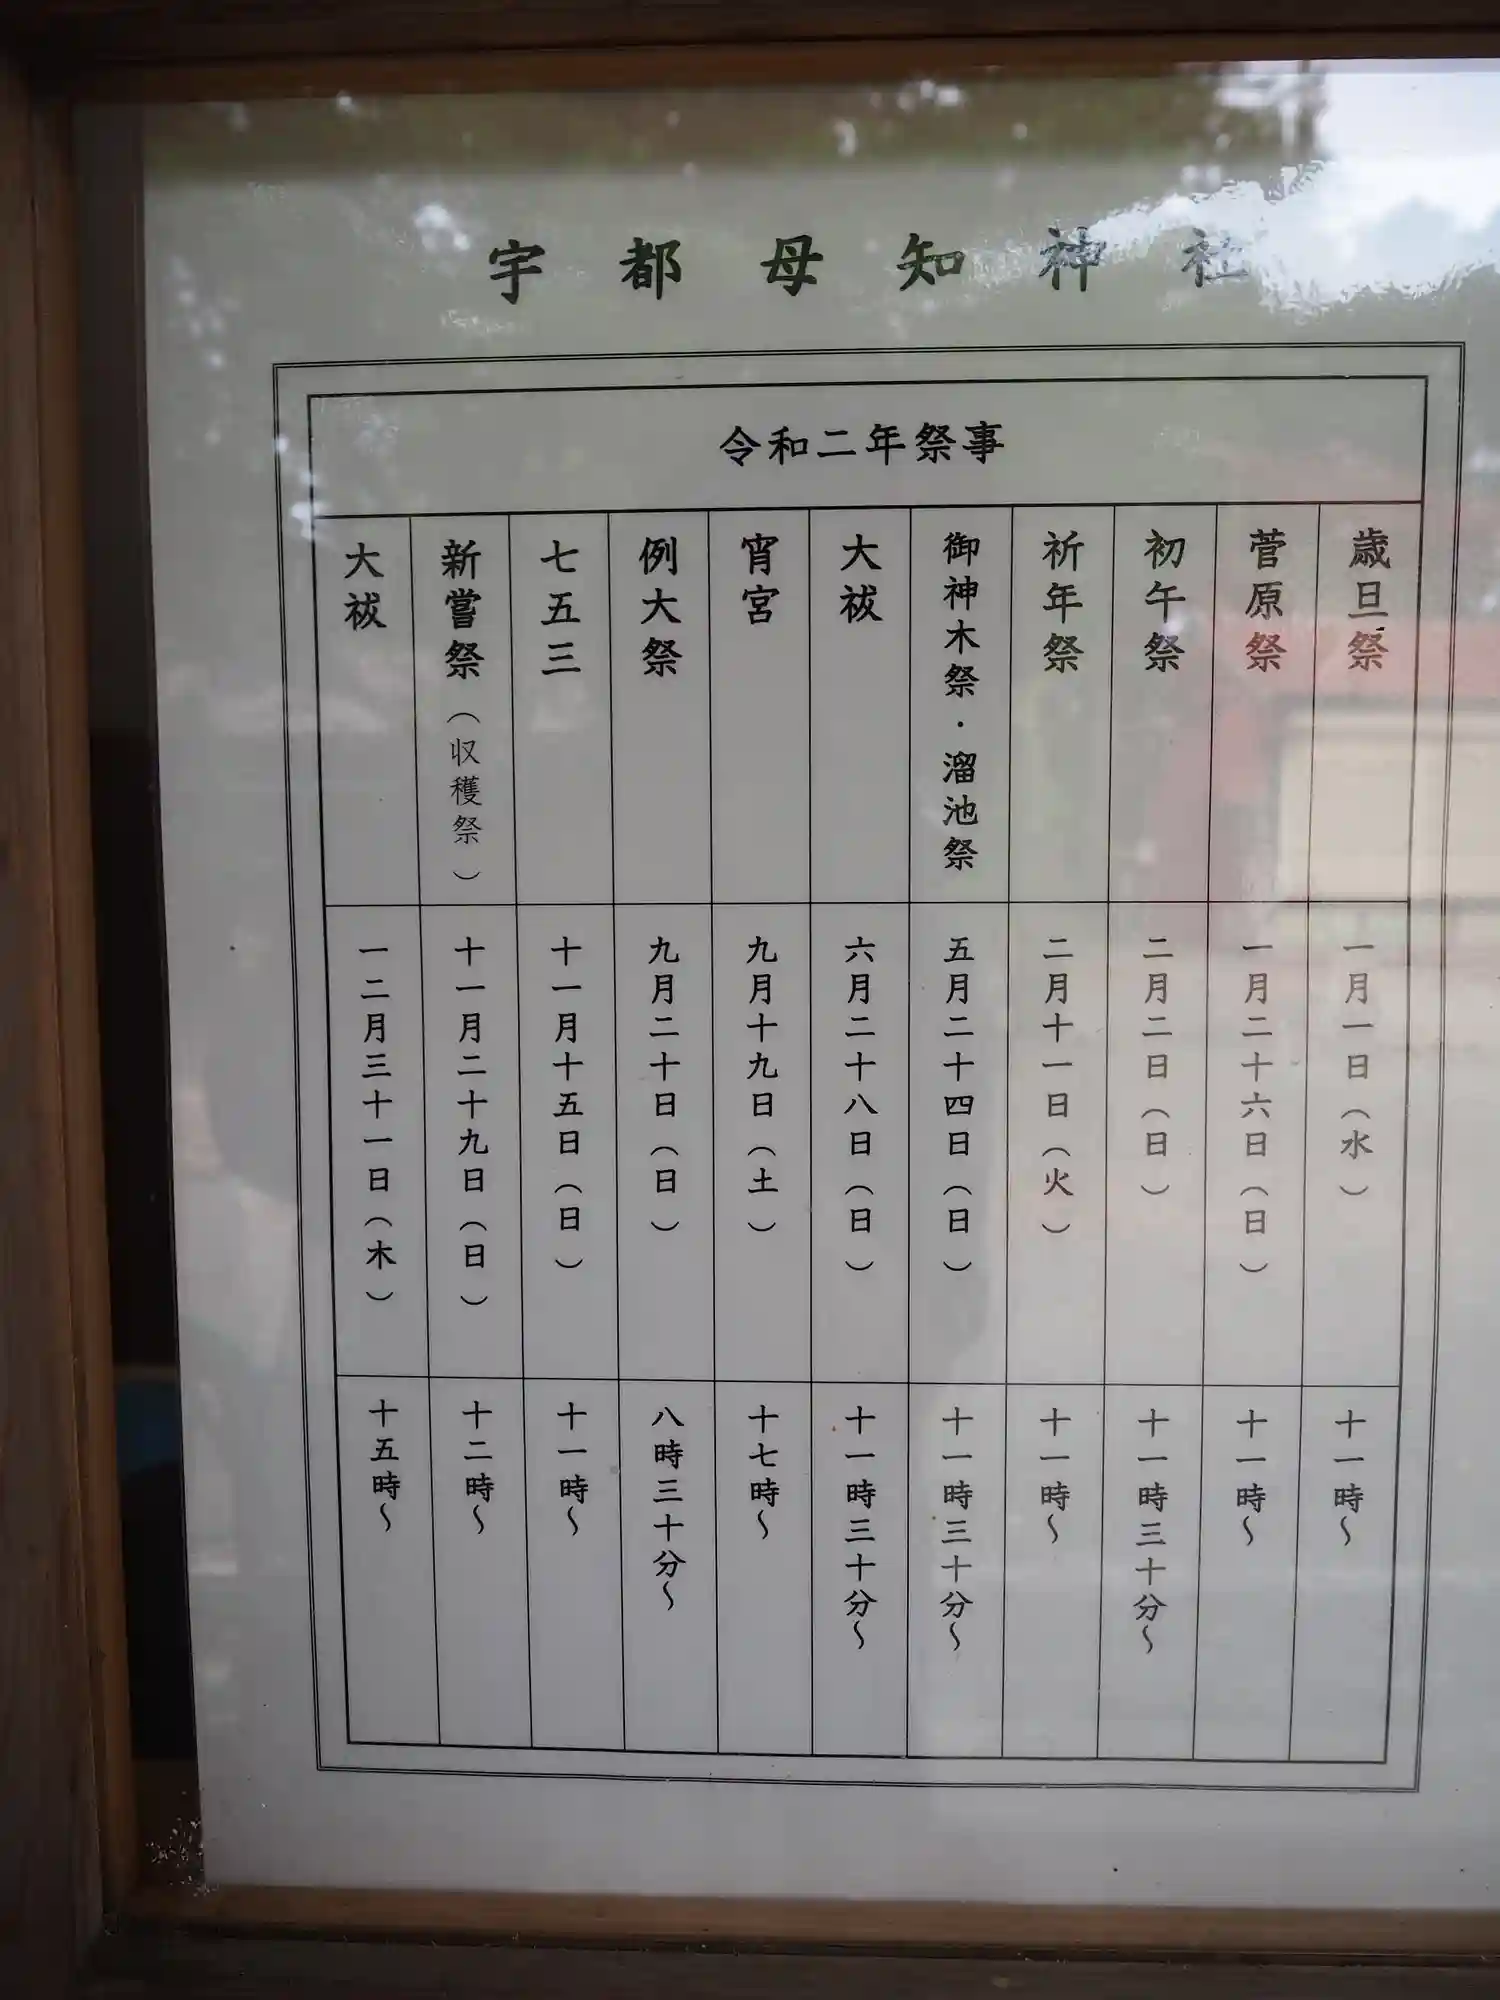 宇都母知神社
令和二年祭事
歳旦祭 一月一日（水） 十一時～
菅原祭 一月二十六日（日） 十一時～
初午祭 二月二日（日） 十一時三十分～
祈年祭 二月十一日（火） 十一時～
御神木祭・溜池祭 五月二十四日（日） 十一時三十分～
大祓 六月二十八日（日） 十一時三十分～
宵宮 九月十九日（土） 十七時～
例大祭 九月二十日（日） 八時三十分～
七五三 十一月十五日（日） 十一時～
新嘗祭（収穫祭） 十一月二十九日（日） 十二時～
大祓 一二月三十一日（木） 十五時～